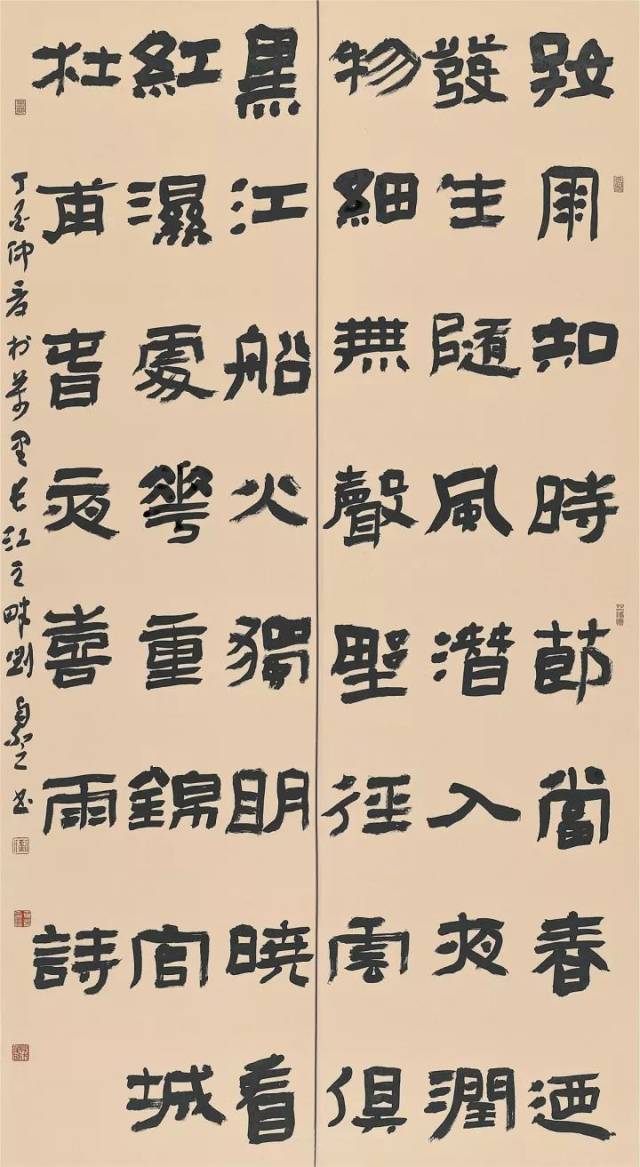 好雨知時節當春迺
發生隨風潛入夜潤
物細無聲野徑雲俱
黑江船火獨明曉看
紅濕處花重錦官城
杜甫春夜喜雨詩
丁酉仲春於萬里長江之畔劉書